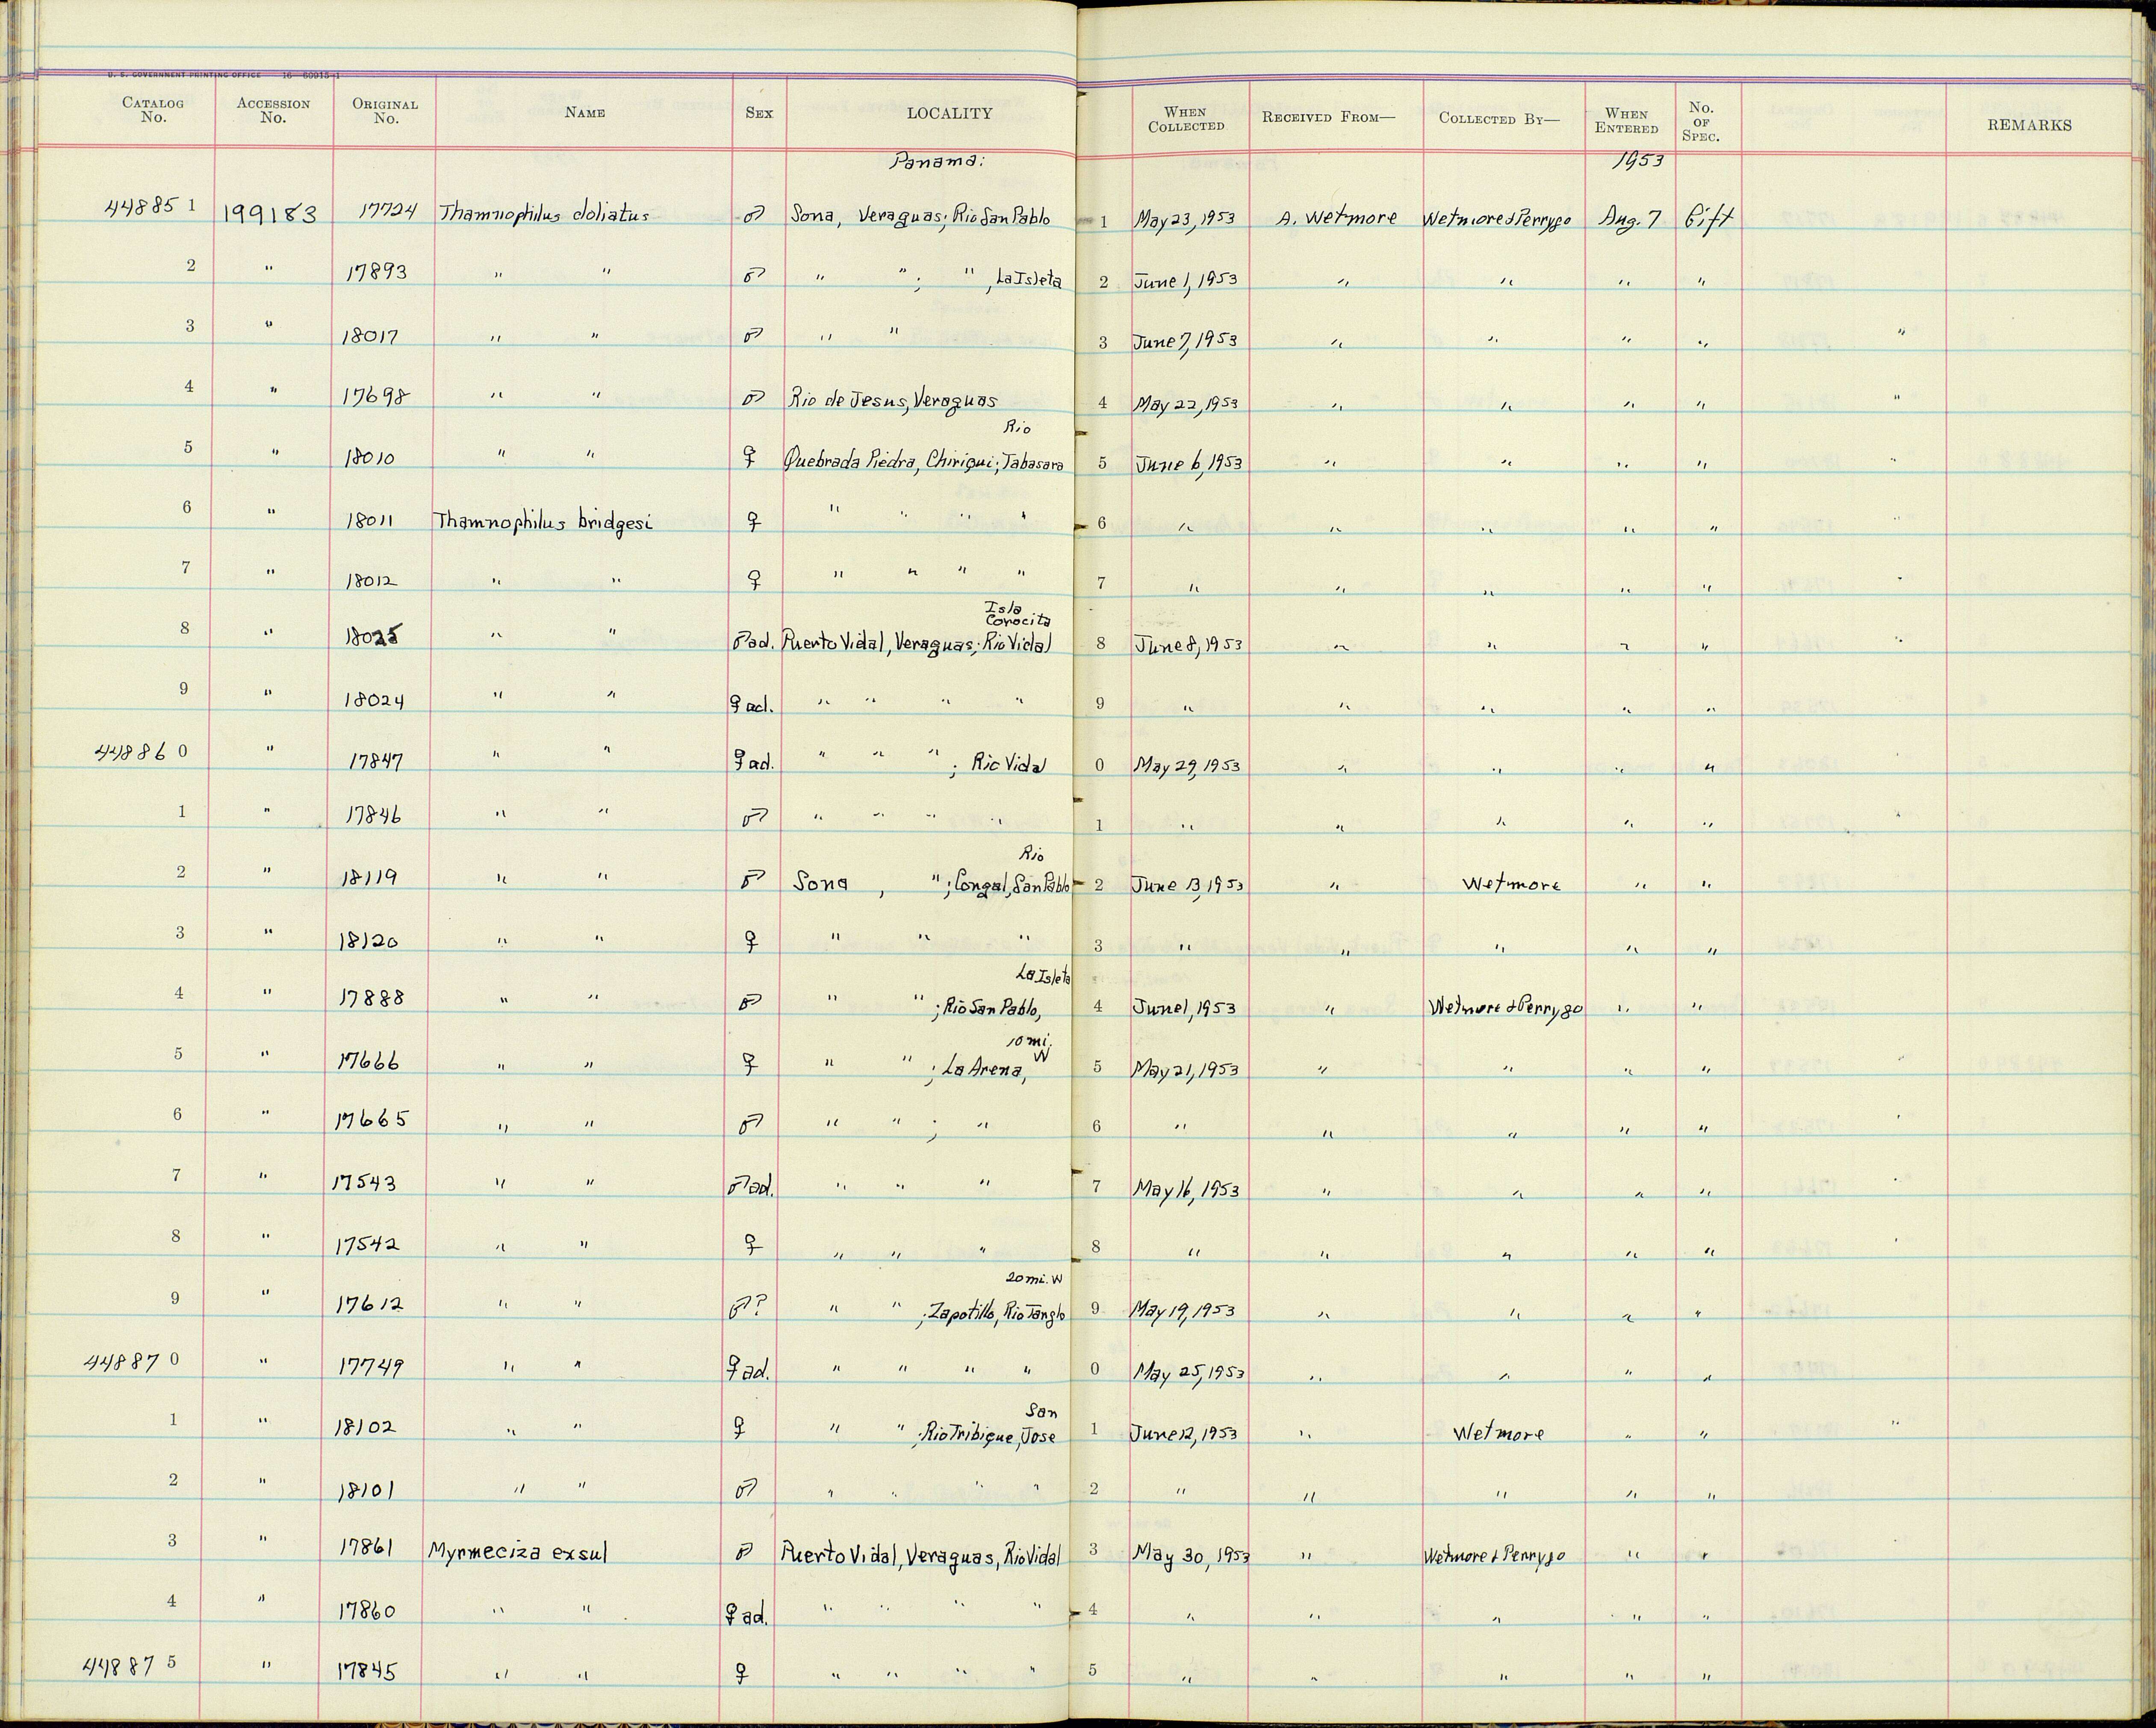 U. S. GOVERNMENT PRINTING OFFICE 16—60915-1
CATALOG No. ACCESSION No. ORIGINAL No. NAME SEX LOCALITY WHEN COLLECTED RECEIVED FROM— COLLECTED BY— WHEN ENTERED No. OF SPEC. REMARKS
Panama: 1953
44885 1 199183 17724 Thamnophilus doliatus ♂ Sona, Veraguas; Rio San Pablo 1 May 23, 1953 A. Wetmore Wetmore & Perrygo Aug. 7 Gift
2 " 17893 " " ♂ " " ; " , La Isleta 2 June 1, 1953 " " " "
3 " 18017 " " ♂ " " 3 June 7, 1953 " " " " "
4 " 17698 " " ♂ Rio de Jesus, Veraguas 4 May 22, 1953 " " " " "
Rio
5 " 18010 " " ♀ Quebrada Piedra, Chiriqui; Tabasara 5 June 6, 1953 " " " "
6 " 18011 Thamnophilus bridgesi ♀ " " " " 6 " " " " "
7 " 18012 " " ♀ " " " " 7 " " " " "
Isla
Corocita
8 " 18025 " " ♂ ad. Puerto Vidal, Veraguas; Rio Vidal 8 June 8, 1953 " " " "
9 " 18024 " " ♀ ad. " " " " 9 " " " " "
44886 0 " 17847 " " ♀ ad. " " " ; Rio Vidal 0 May 29, 1953 " " " "
1 " 17846 " " ♂ " " " " 1 " " " " "
Rio
2 " 18119 " " ♂ Sona , " ; Congal, San Pablo 2 June 13, 1953 " Wetmore " "
3 " 18120 " " ♀ " " " 3 " " " " "
La Isleta
4 " 17888 " " ♂ " " ; Rio San Pablo, 4 June 1, 1953 " Wetmore & Perrygo " "
10 mi.
W
5 " 17666 " " ♀ " " ; La Arena, 5 May 21, 1953 " " " "
6 " 17665 " " ♂ " " ; " 6 " " " " "
7 " 17543 " " ♂ ad. " " " 7 May 16, 1953 " " " "
8 " 17542 " " ♀ " " " 8 " " " " "
20 mi. W
9 " 17612 " " ♂? " " ; Zapotillo, Rio Tanglo 9 May 19, 1953 " " " "
44887 0 " 17749 " " ♀ ad. " " " " 0 May 25, 1953 " " " "
San
1 " 18102 " " ♀ " " ; Rio Tribique, Jose 1 June 12, 1953 " Wetmore " " "
2 " 18101 " " ♂ " " " " 2 " " " " "
3 " 17861 Myrmeciza exsul ♂ Puerto Vidal, Veraguas, Rio Vidal 3 May 30, 1953 " Wetmore & Perrygo " "
4 " 17860 " " ♀ ad. " " " " 4 " " " " "
44887 5 " 17845 " " ♀ " " " " 5 " " " " "